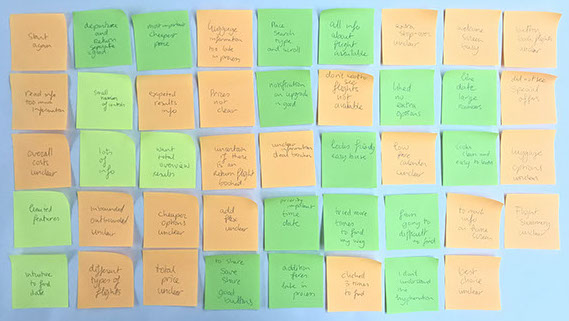 Start
again
departure
and
return
separate
good
most important
cheapest
price
luggage
information
too late
in process
Nice
search
engine
and scroll
all info
about
flight
available
extra
unclear
welcome
screen
busy
button
flights
unclear
read info
too much
information
small
names of
expected
results
info
Prices
not
clear
notification
on upgrade
= good
don't want to
see
flights
not
available
liked
no
extra
options
like
date
large
numbers
did not see
special
offer
overall
costs
unclear
lots
of
info
want
total
overview
results
uncertain
of
return flight
booked
unclear
information
looks friendly
easy
low
fare
calendar
unclear
looks
clean and
easy to
luggage
options
unclear
limited
features
inbound
outbound
unclear
cheaper
options
unclear
add
unclear
priority
important
time
date
tried more
times
to find
my way
from
going to
difficult
to find
to much
info
on
home
screen
flight
summary
unclear
intuitive
to find
date
different
types of
flights
total
price
unclear
to share
Save
Store
good
buttons
addition
fares
late in
process
clicked
3 times
to find
I don't
understand
the
best
choice
unclear